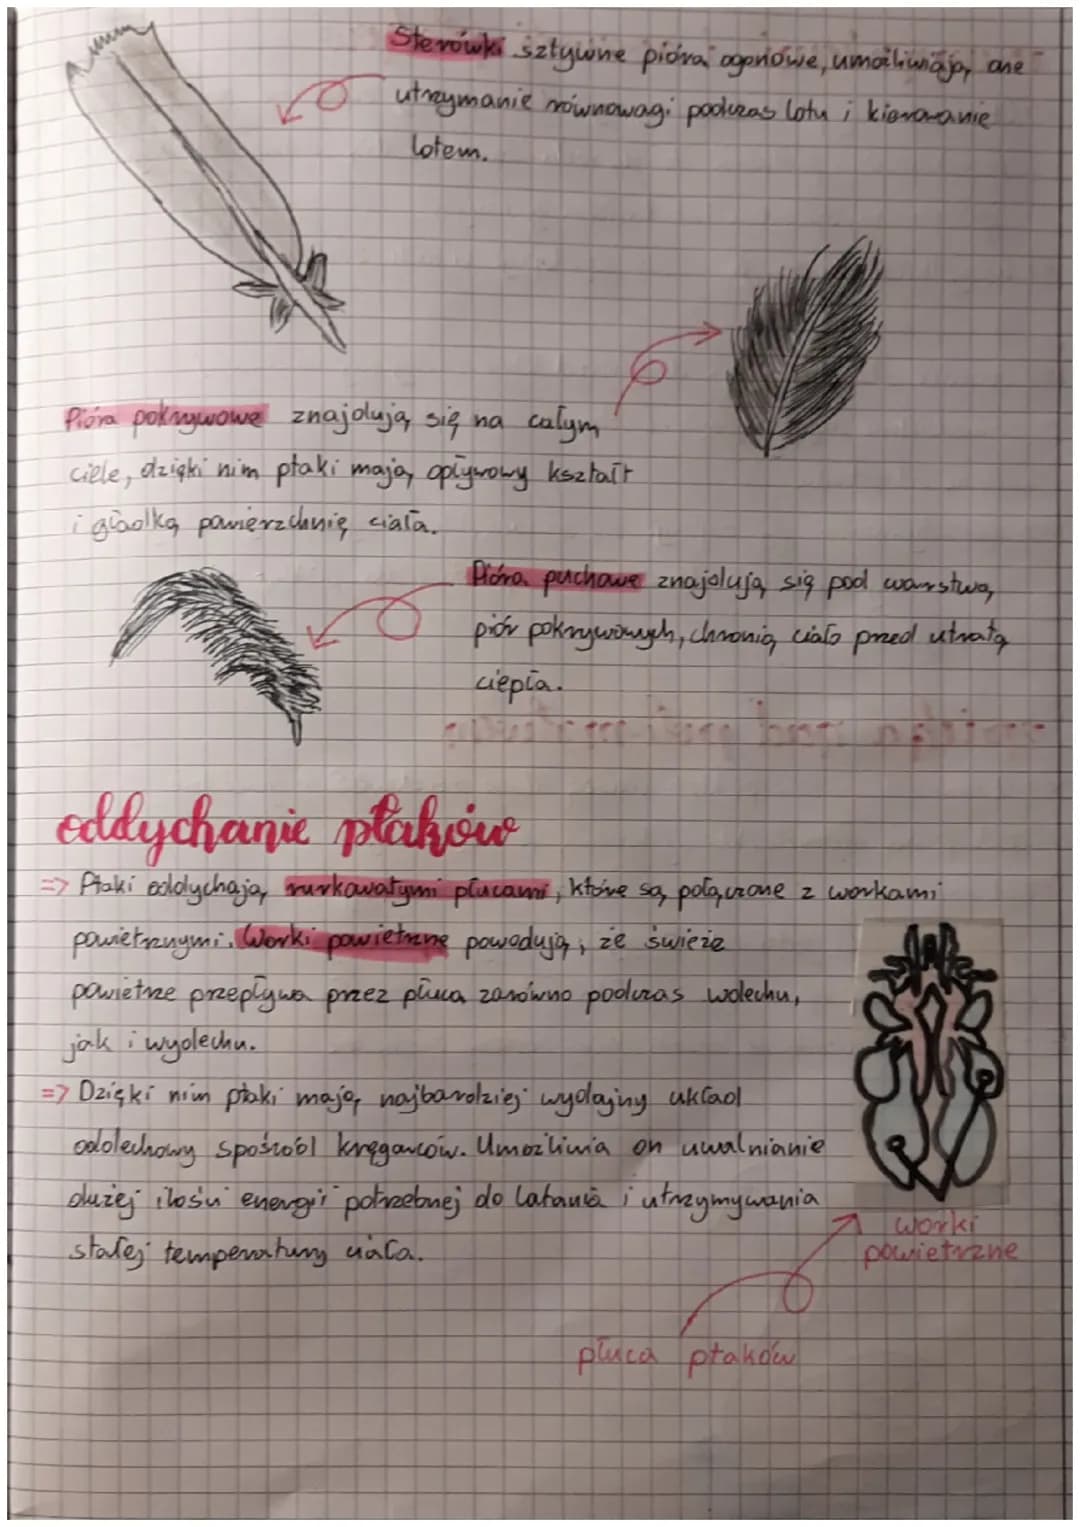 Sterówki sztywne pióra ogonowe, umożliwiają one
utrzymanie równowagi podczas lotu i kierowanie
lotem.
Pióra pokrywowe znajdują się na całym
ciele, dzięki nim ptaki mają opływowy kształt
i gładką powierzchnię ciała.
Pióra puchowe znajdują się pod warstwą
piór pokrywowych, chronią ciało przed utratą
ciepła.
oddychanie ptaków
=> Ptaki oddychają rurkowatymi płucami, które są połączone z workami
powietrznymi. Worki powietrzne powodują, że świeże
powietrze przepływa przez płuca zarówno podczas wdechu,
jak i wydechu.
=> Dzięki nim ptaki mają najbardziej wydajny układ
oddechowy spośród kręgowców. Umożliwia on uwalnianie
dużej ilości energii potrzebnej do latania i utrzymywania
stałej temperatury ciała.
worki
powietrzne
płuca ptaków